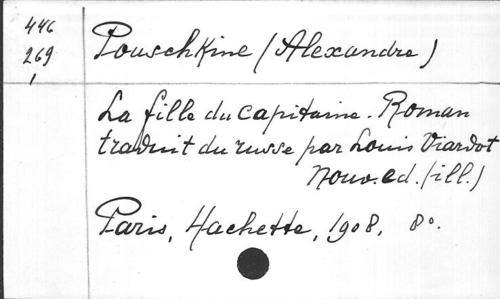 446
269
1
Pouschkine (Alexandre)
La fille du capitaine. Roman
traduit du russe par Louis Viardot
Nouv. ed. (ill.)
Paris, Hachette, 1908, 8°.